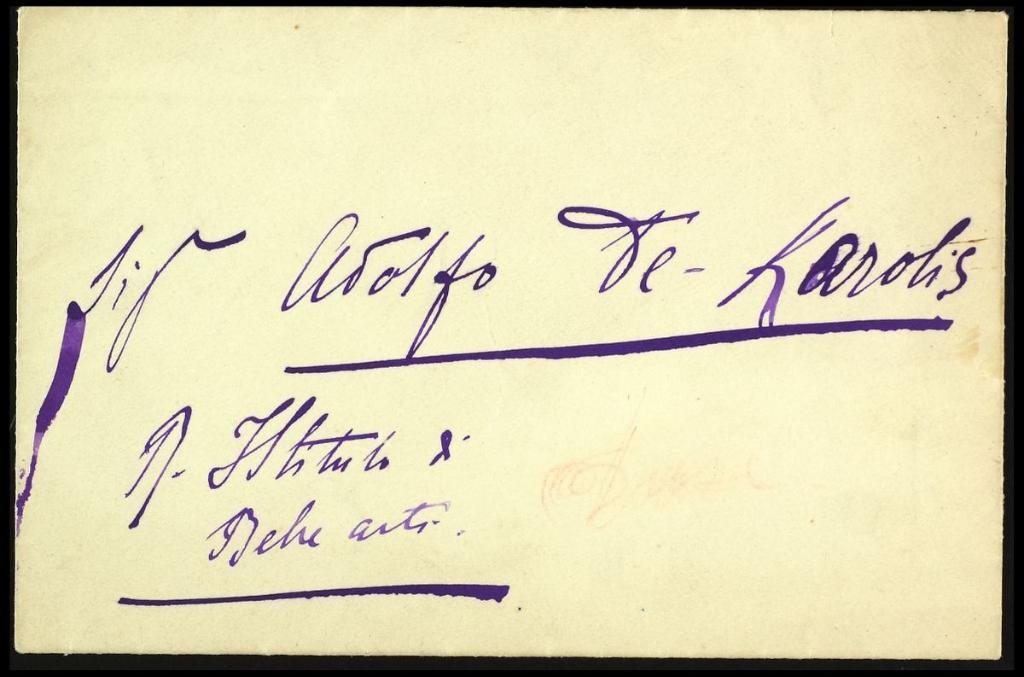 Sig Adolfo De-Karolis
R. Istituto di
Belle arti.